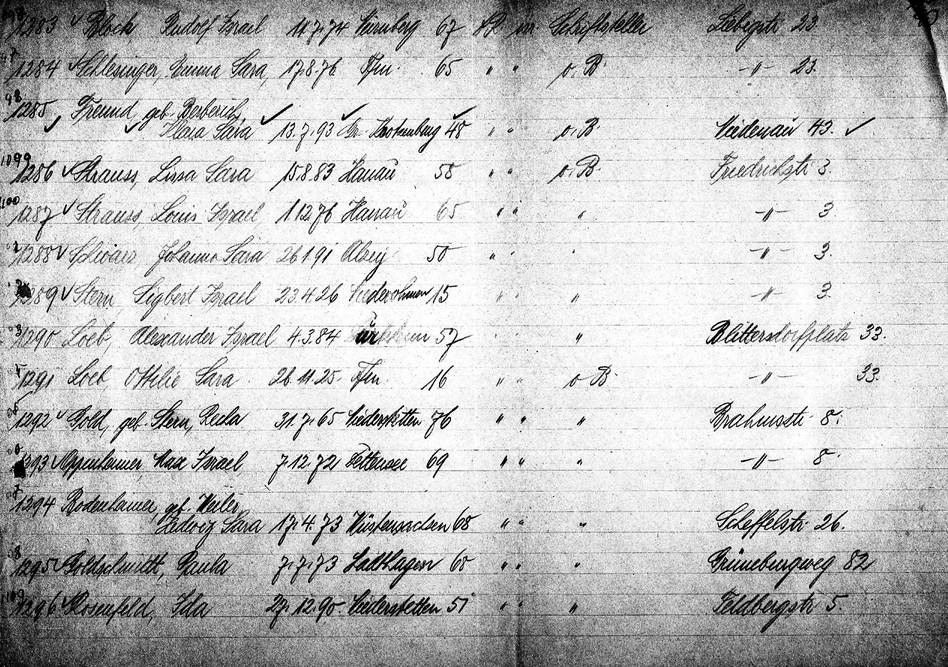 1283 Block Rudolf Israel 11.7.74 Nürnberg 67 Schriftsteller Liebigstr 23
1284 Schlesinger, Emma Sara, 17.8.76 Ffm. 65 " " o. B. -"- 23.
1285 Freund geb. Berberich,
Klara Sara 13.7.93 48 " " o. B. 43.
1286 Strauss, Sara 15.8.83 Hanau 58 " " o. B. Friedrichstr 3.
1287 Strauss, Louis Israel 1.12.76 Hanau 65 " " " -"- 3
1288 Johanna Sara 26.1.91 Alzey 50 " " " -"- 3.
1289 Stern, Sigbert Israel 23.4.26 Niederohmen 15 " " " -"- 3.
1290 Loeb, Alexander Israel 4.3.84 57 " " " Blittersdorfplatz 33.
1291 Loeb Ottilie Sara 26.11.25. Ffm. 16 " " o B. -"- 33.
1292 Gold, geb. Stern, 31.7.65 Niederstetten 76 " " " Brahmsstr 8.
1293 Oppenheimer Max Israel 7.12.72 69 " " " -"- 8.
1294 Bodenheimer, geb. Weiler,
Hedwig Sara 17.4.73 Wüstensachsen 68 " " " Scheffelstr. 26.
1295 Goldschmidt, Paula 7.7.73 68 " " " Grüneburgweg 82
1296 Rosenfeld, Ida 29.12.90 Niederstetten 51 " " " Feldbergstr 5.